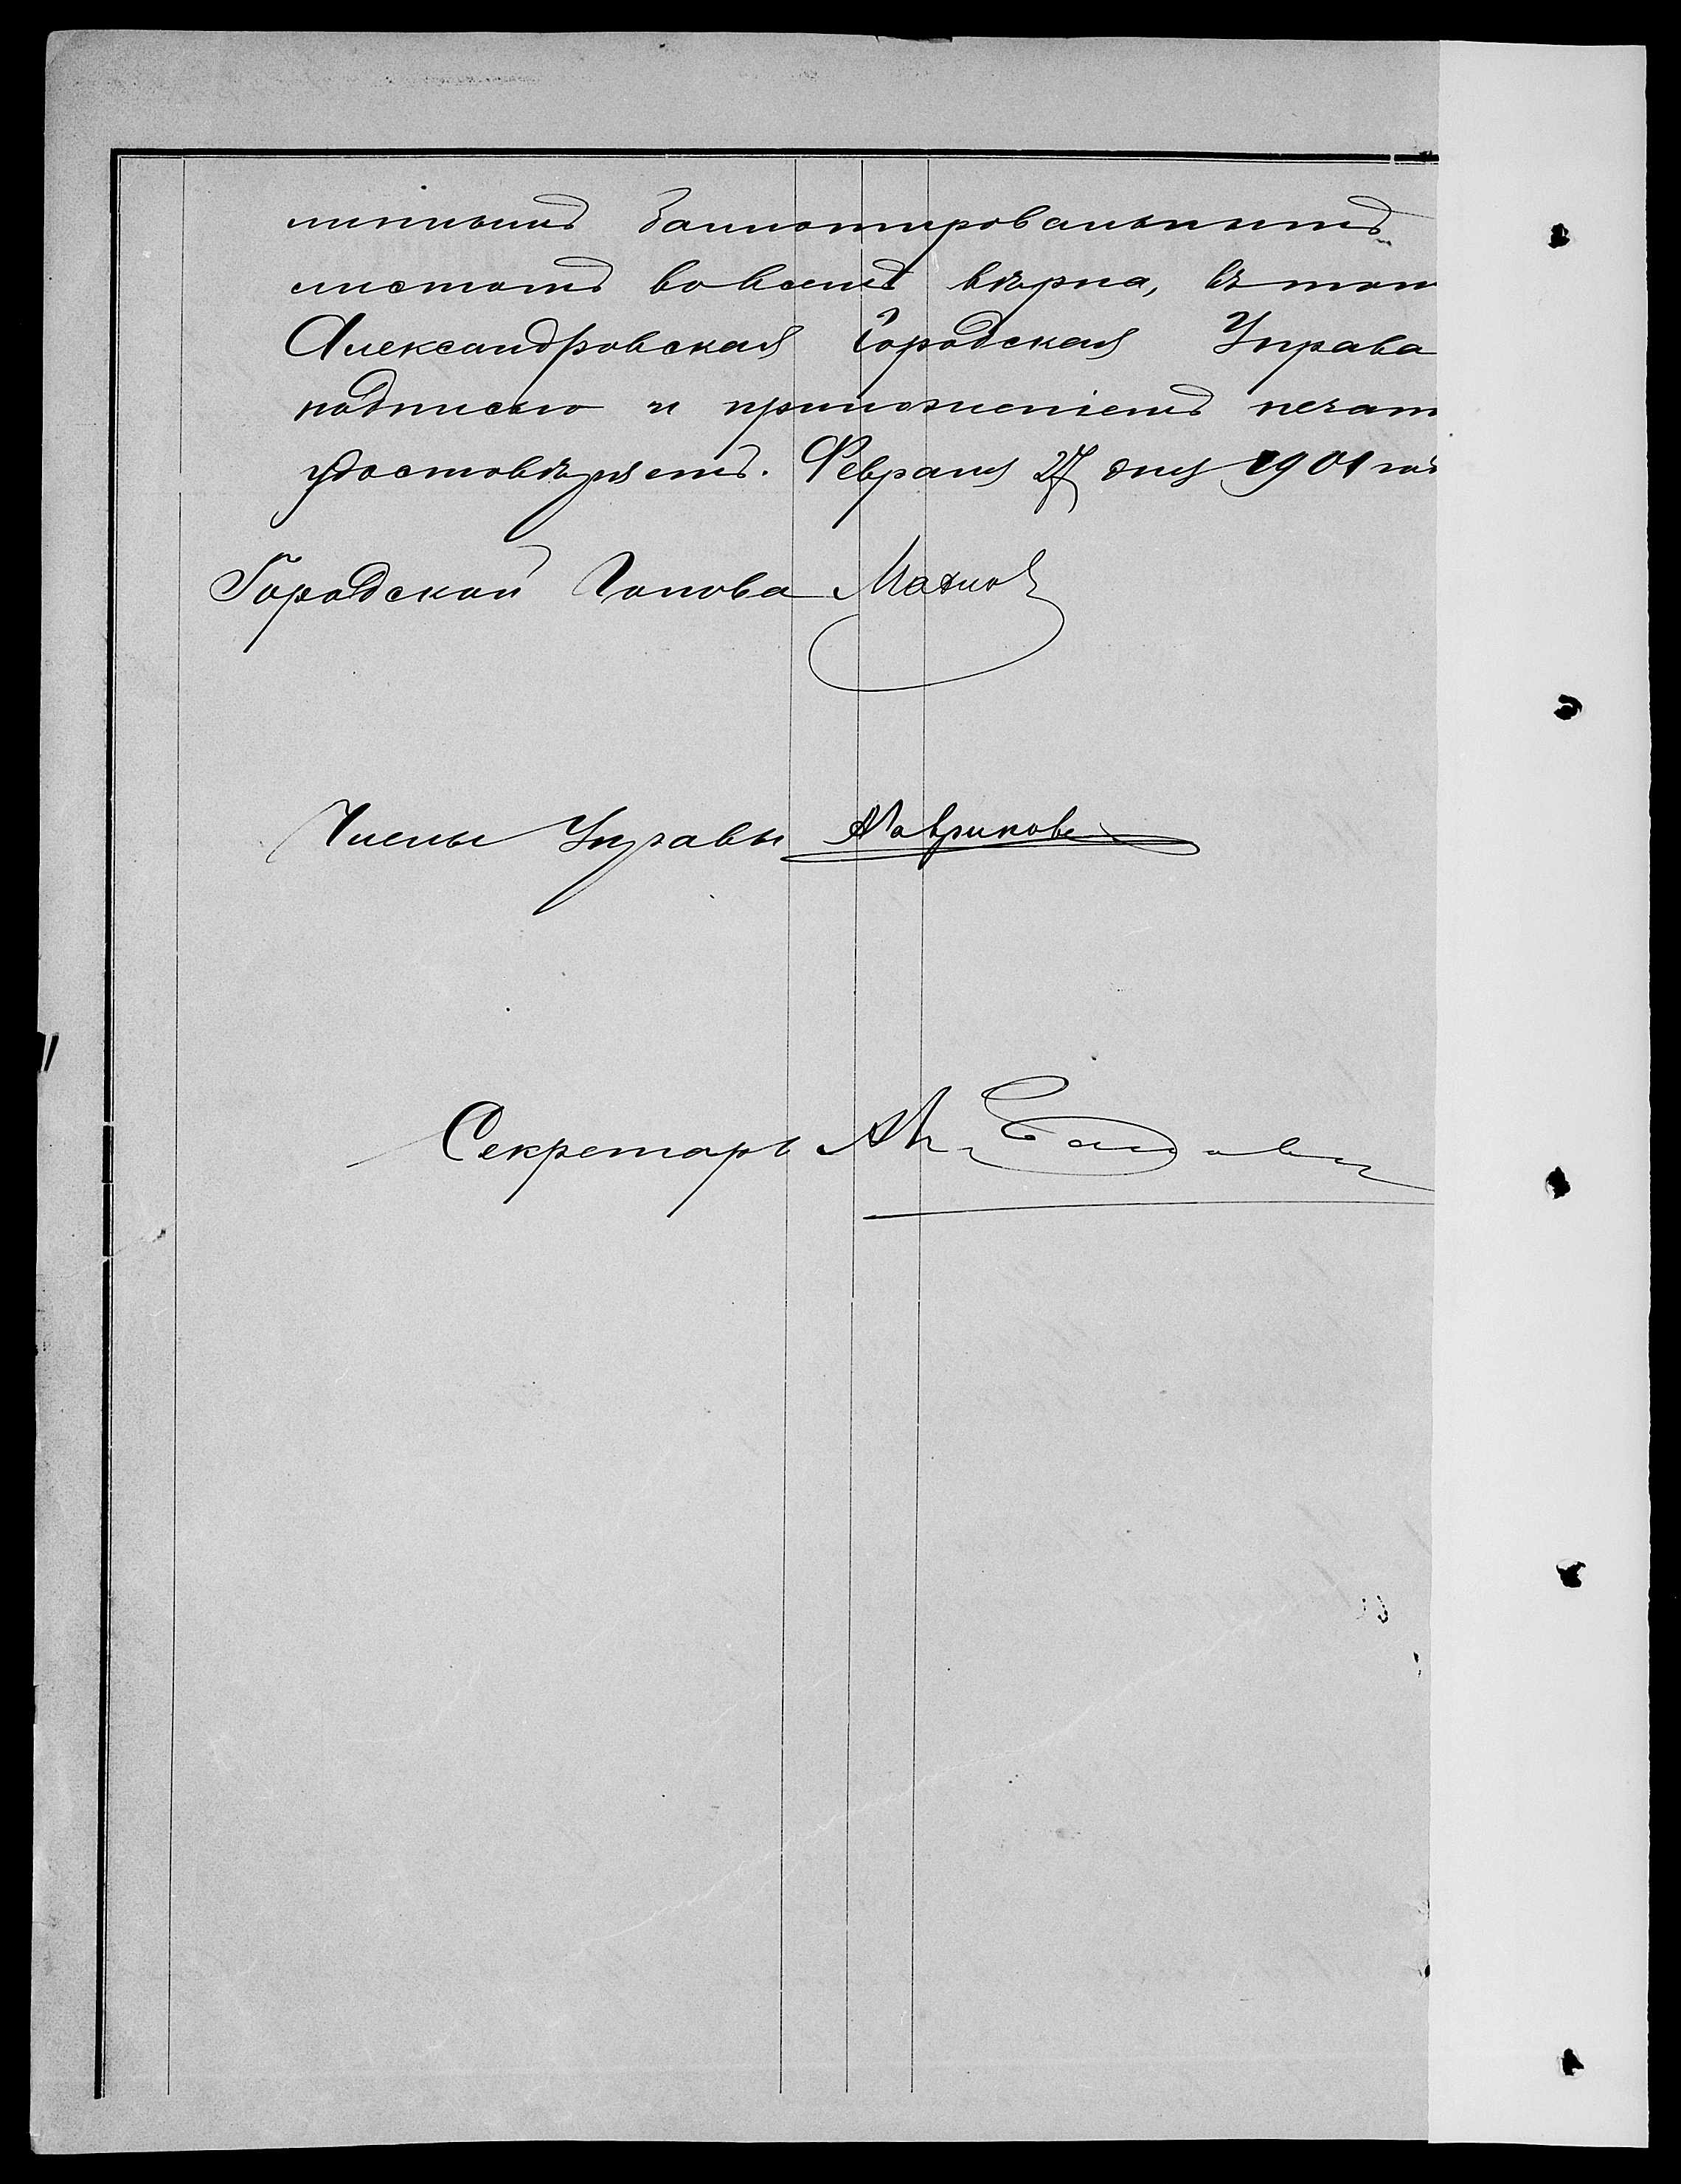 линнымъ баллотировальнымъ
листомъ во всемъ вѣрна, въ том
Александровская Городская Управа
подписью и приложеніемъ печат
удостовѣряетъ. Февраля 27 дня 1901 год
Городской Голова
Члены Управы
Секретарь